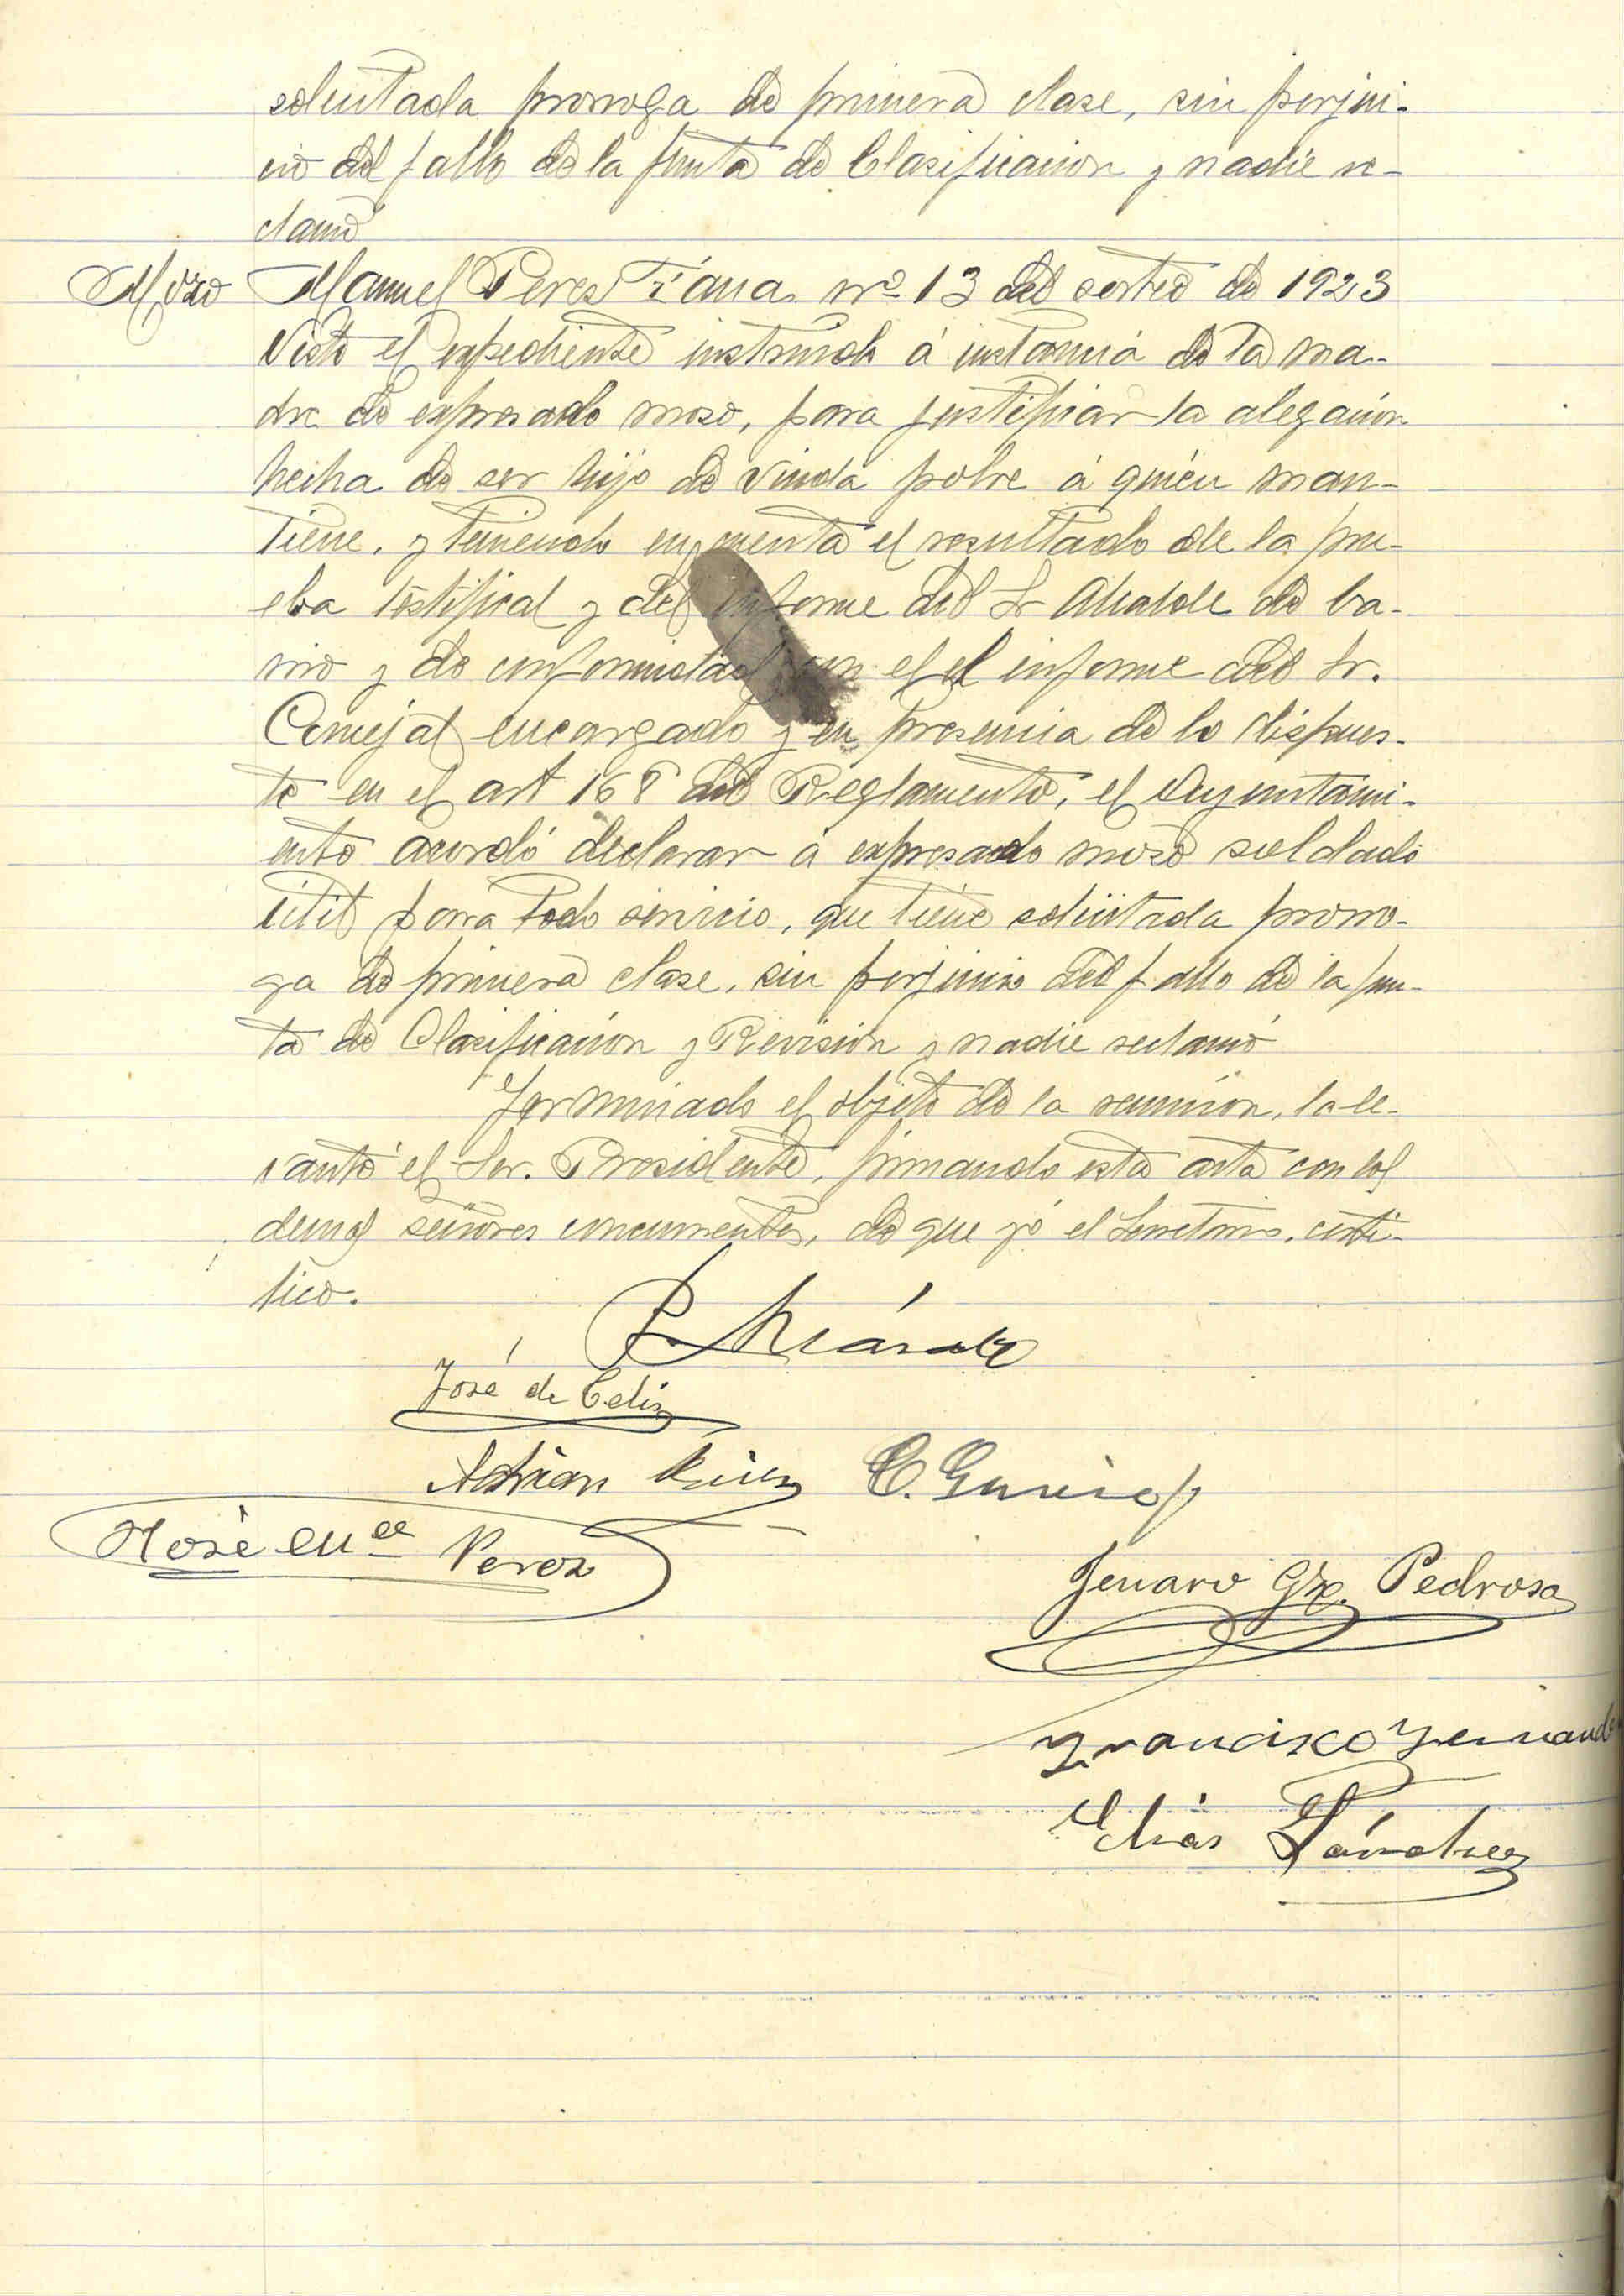 solicitada prorroga de primera clase, sin perjui-
cio del fallo de la Junta de Clasificacion y nadie re-
clamó
Mozo Manuel Perez Tíana nº 13 del sorteo de 1923
Visto el expediente instruido á instancia de la ma-
dre de expresado mozo, para justificar la alegación
hecha de ser hijo de viuda pobre á quién man-
tiene, y teniendo en cuenta el resultado de la pru-
eba testifical y del informe del Sr Alcalde de ba-
rrio y de conformidad con el el informe del Sr.
Concejal encargado y en presencia de lo dispues-
to en el art 168 del Reglamento, el Ayuntami-
ento acordó declarar á expresado mozo soldado
útil para todo servicio, que tiene solicitada prorro-
ga de primera clase, sin perjuicio del fallo de la Jun-
ta de Clasificación y Revisión y nadie reclamó
Terminado el objeto de la reunión, la le-
vantó el Sr. Presidente, firmando esta acta con los
demas señores concurrentes, de que yó el Secretario, certi-
fico.
José de Celis
Adrian Ruiz
José Perez
Jenaro Gz. Pedrosa
Francisco Fernande
Elías Sánchez